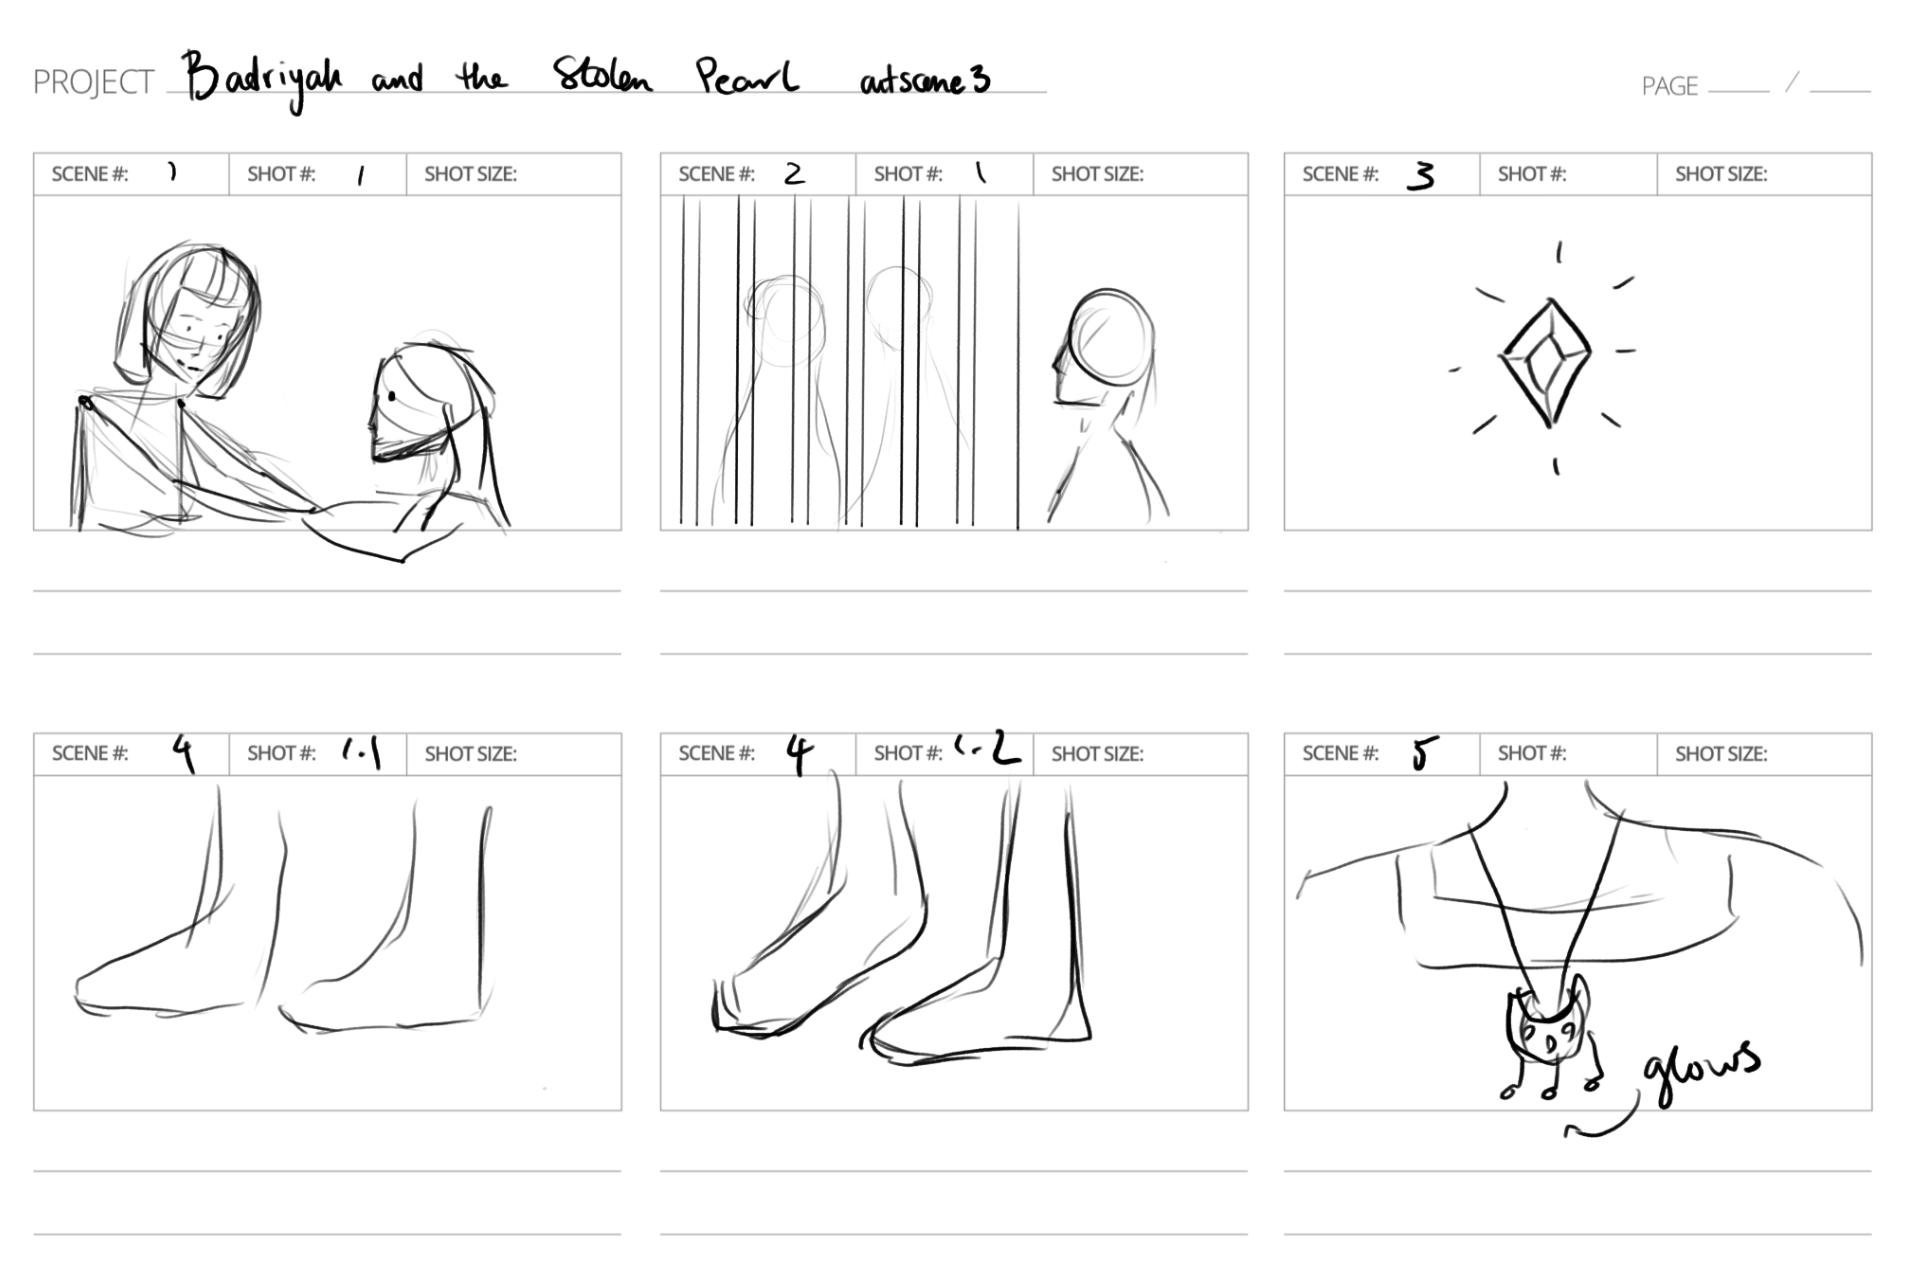 PROJECT Badriyah and the Stolen Pearl artscene3
PAGE /
SCENE #: 1 SHOT #: 1 SHOT SIZE:
SCENE #: 2 SHOT #: 1 SHOT SIZE:
SCENE #: 3 SHOT #: SHOT SIZE:
SCENE #: 4 SHOT #: 1.1 SHOT SIZE:
SCENE #: 4 SHOT #: 1.2 SHOT SIZE:
SCENE #: 5 SHOT #: SHOT SIZE:
glows